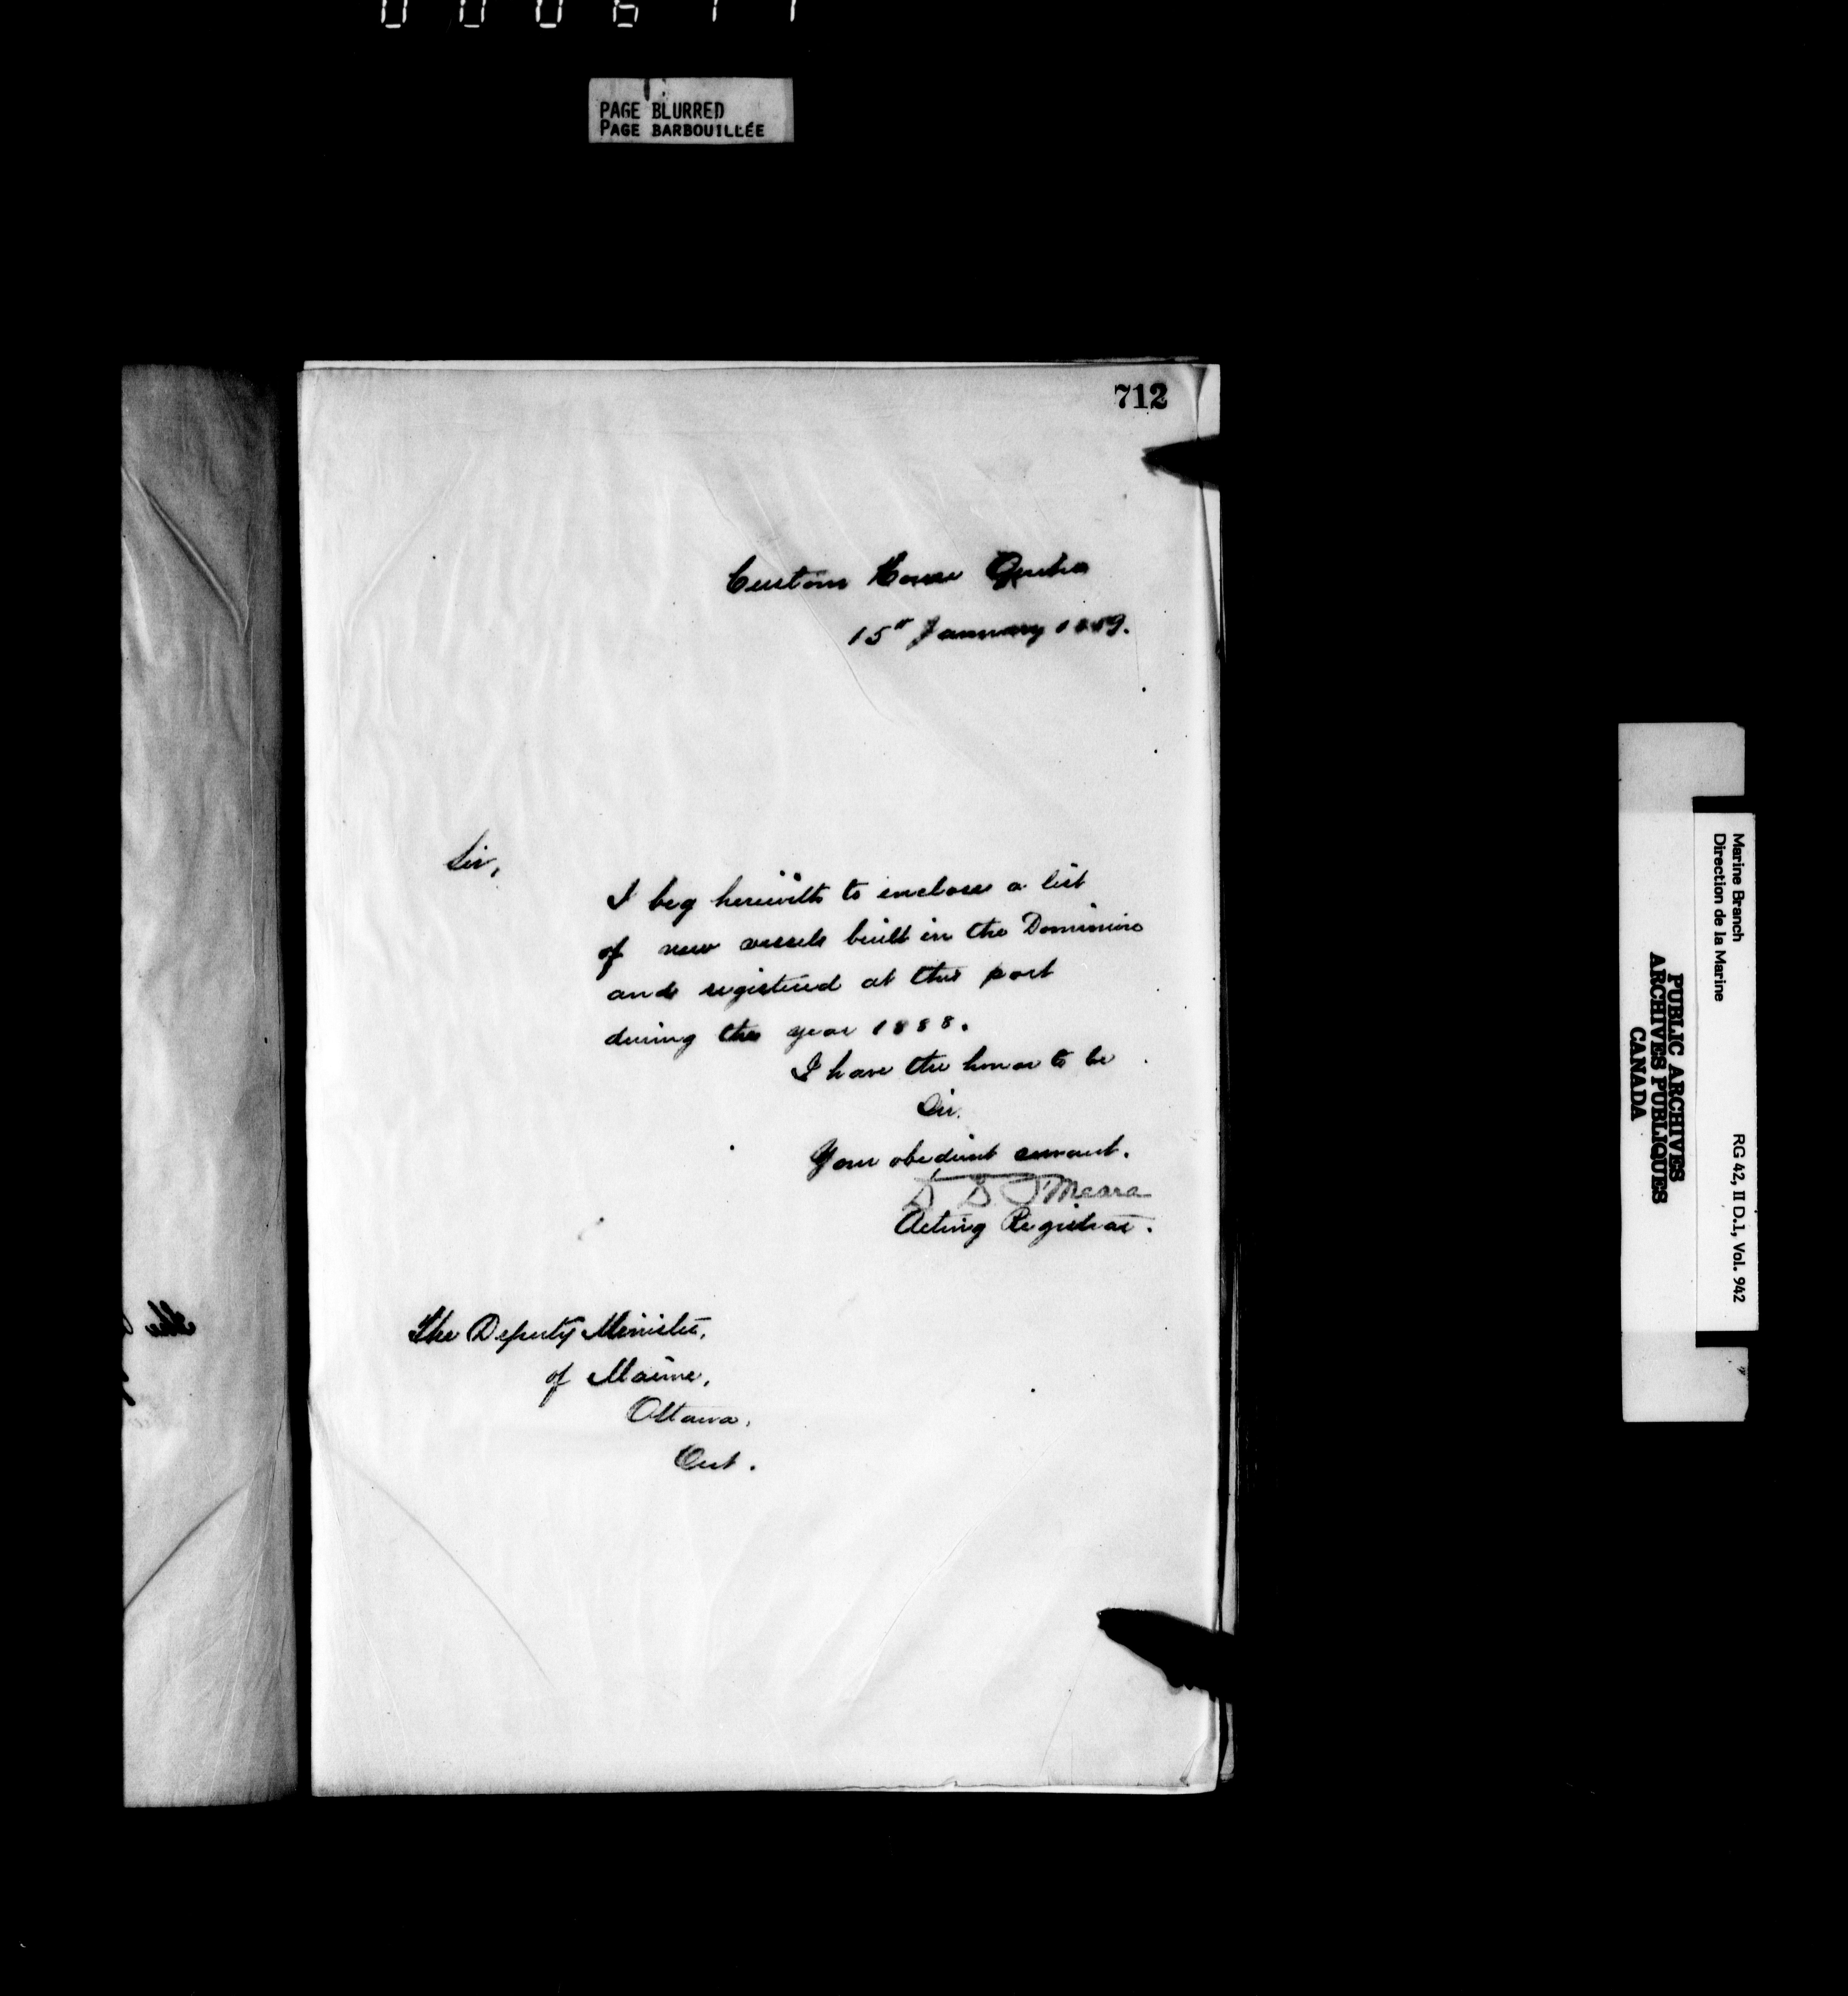 PAGE BLURRED
PAGE BARBOUILLÉE
712
Custom House Quebec
15th January 1889.
Sir,
I beg herewith to enclose a list
of new vessels built in the Dominion
and registered at this port
during the year 1888.
I have the honor to be
Sir.
Your obedient servant.
D D O'Meara
Acting Registrar.
The Deputy Minister,
of Marine,
Ottawa,
Ont.
The
Marine Branch
Direction de la Marine
RG 42, II D.1, Vol. 942
PUBLIC ARCHIVES
ARCHIVES PUBLIQUES
CANADA